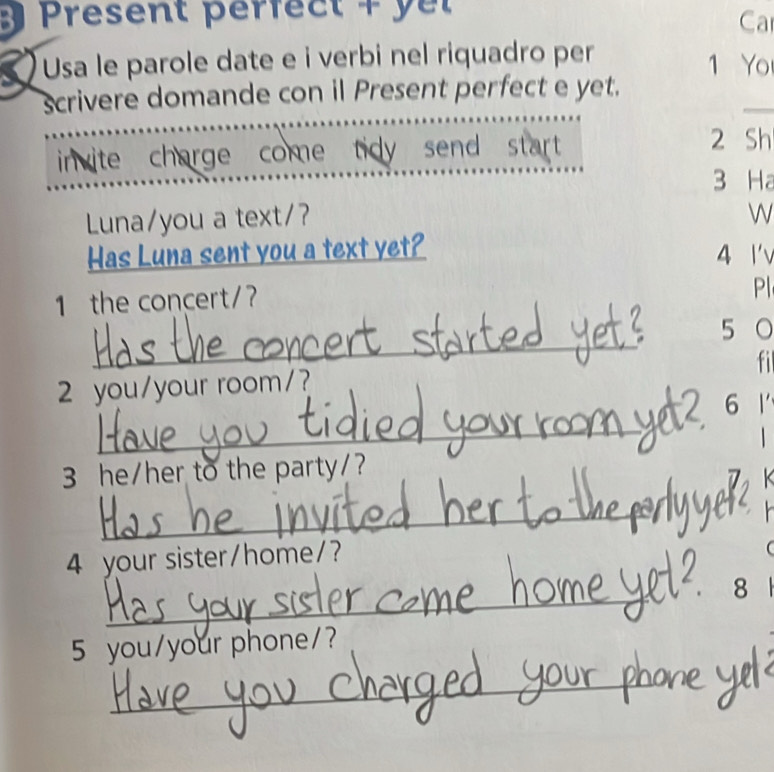 B Present perfect + yet
Usa le parole date e i verbi nel riquadro per
scrivere domande con il Present perfect e yet.
invite charge come tidy send start
Luna/you a text/?
Has Luna sent you a text yet?
1 the concert/?
Has the concert started yet?
2 you/your room/?
Have you tidied your room yet?
3 he/her to the party/?
Has he invited her to the party yet?
4 your sister/home/?
Has your sister come home yet?
5 you/your phone/?
Have you charged your phone yet?
1
2
3
4
5
6
7
8